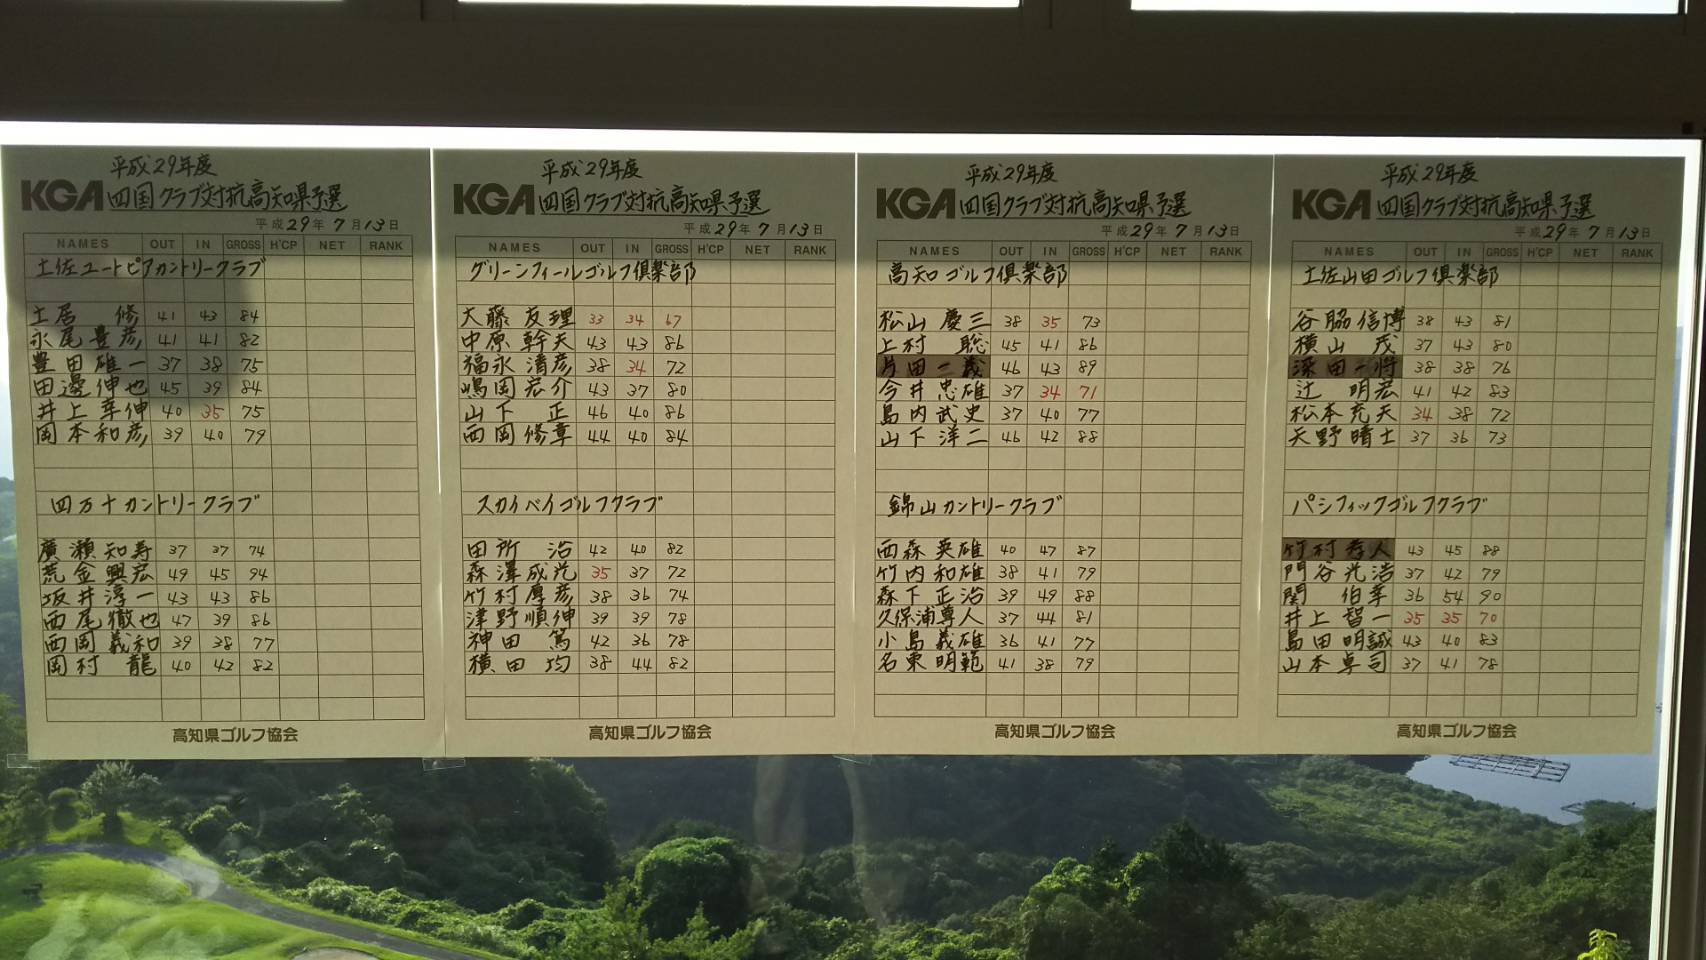 平成29年度
KGA 四国クラブ対抗高知県予選
平成29年7月13日
NAMES OUT IN GROSS H'CP NET RANK
土佐ユートピアカントリークラブ
土居 修 41 43 84
永尾豊彦 41 41 82
豊田雄一 37 38 75
田邊伸也 45 39 84
井上幸伸 40 35 75
岡本和彦 39 40 79
四万十カントリークラブ
廣瀬知寿 37 37 74
荒金興宏 49 45 94
坂井淳一 43 43 86
西尾徹也 47 39 86
西岡義和 39 38 77
岡村 龍 40 42 82
高知県ゴルフ協会
平成29年度
KGA 四国クラブ対抗高知県予選
平成29年7月13日
NAMES OUT IN GROSS H'CP NET RANK
グリーンフィールゴルフ倶楽部
大藤友理 33 34 67
中原幹夫 43 43 86
福永清彦 38 34 72
嶋岡宏介 43 37 80
山下 正 46 40 86
西岡修章 44 40 84
スカイベイゴルフクラブ
田所 治 42 40 82
森澤成光 35 37 72
竹村厚彦 38 36 74
津野順伸 39 39 78
神田 篤 42 36 78
横田 均 38 44 82
高知県ゴルフ協会
平成29年度
KGA 四国クラブ対抗高知県予選
平成29年7月13日
NAMES OUT IN GROSS H'CP NET RANK
高知ゴルフ倶楽部
松山慶三 38 35 73
上村 聡 45 41 86
片田一義 46 43 89
今井忠雄 37 34 71
島内武史 37 40 77
山下洋二 46 42 88
錦山カントリークラブ
西森英雄 40 47 87
竹内和雄 38 41 79
森下正治 39 49 88
久保浦尊人 37 44 81
小島義雄 36 41 77
名東明範 41 38 79
高知県ゴルフ協会
平成29年度
KGA 四国クラブ対抗高知県予選
平成29年7月13日
NAMES OUT IN GROSS H'CP NET RANK
土佐山田ゴルフ倶楽部
谷脇信博 38 43 81
横山 茂 37 43 80
深田一将 38 38 76
辻 明宏 41 42 83
松本充夫 34 38 72
天野晴士 37 36 73
パシフィックゴルフクラブ
竹村孝人 43 45 88
門谷光浩 37 42 79
関 伯幸 36 54 90
井上智一 35 35 70
島田明誠 43 40 83
山本卓司 37 41 78
高知県ゴルフ協会